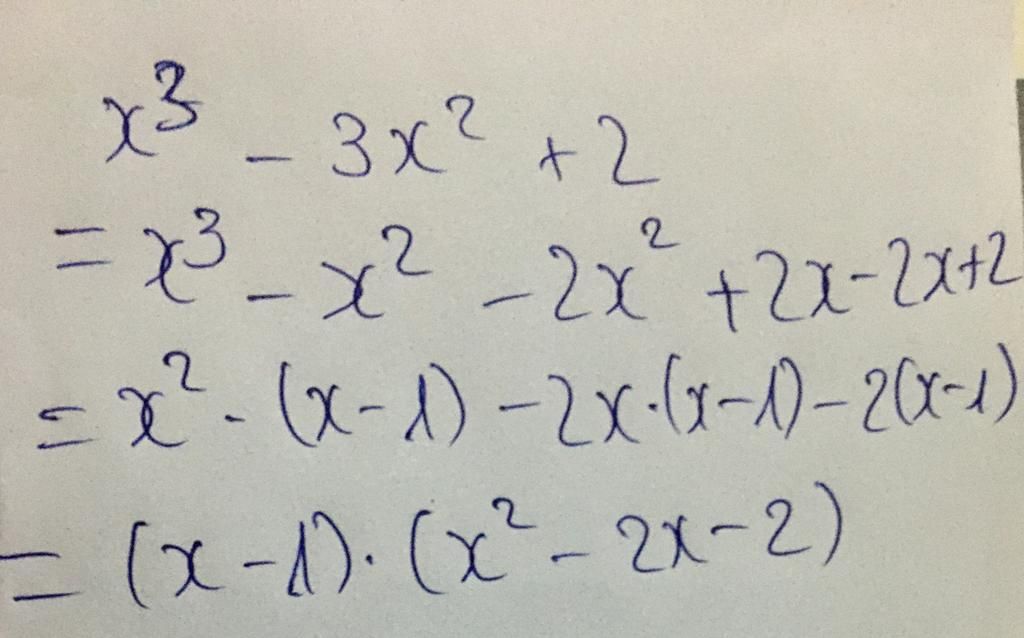 x³ - 3x² + 2
= x³ - x² - 2x² + 2x - 2x + 2
= x² · (x - 1) - 2x · (x - 1) - 2(x - 1)
= (x - 1) · (x² - 2x - 2)